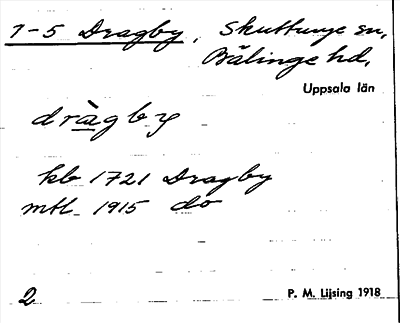 1-5 Dragby, Skuttunge sn,
Bälinge hd,
Uppsala län
dràgby
kb 1721 Dragby
mtl 1915 do
2
P. M. Lijsing 1918